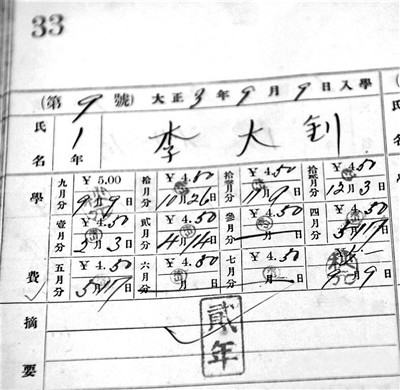 33
(第 9 號) 大正 3 年 9 月 9 日入學
氏名 1年 李大釗
學費
九月分 ¥5.00 9月9日 拾月分 ¥4.50 10月26日 拾一月分 ¥4.50 11月9日 拾貳月分 ¥4.50 12月3日
壹月分 ¥4.50 月3日 貳月分 ¥4.50 4月14日 參月分 ¥4.50 月日 四月分 ¥4.50 5月17日
五月分 ¥4.50 5月17日 六月分 ¥4.50 月日 七月分 ¥4.50 月日 9月9日
摘要 貳年